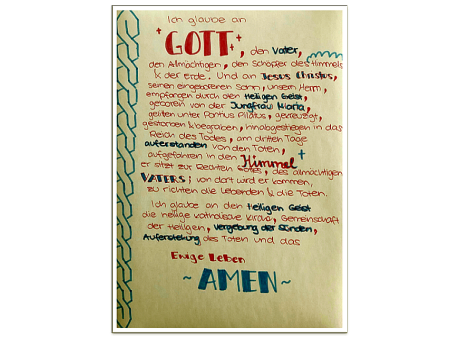 Ich glaube an
GOTT, den Vater,
den Allmächtigen, den Schöpfer des Himmels
& der Erde. Und an Jesus Christus,
seinen eingeborenen Sohn, unsern Herrn,
empfangen durch den Heiligen Geist,
geboren von der Jungfrau Maria,
gelitten unter Pontius Pilatus, gekreuzigt,
gestorben & begraben, hinabgestiegen in das
Reich des Todes, am dritten Tage
auferstanden von den Toten,
aufgefahren in den Himmel
er sitzt zur Rechten Gottes, des allmächtigen
VATERS; von dort wird er kommen,
zu richten die Lebenden & die Toten.
Ich glaube an den Heiligen Geist
die heilige katholische Kirche, Gemeinschaft
der Heiligen, Vergebung der Sünden,
Auferstehung des Toten und das
Ewige Leben
~ AMEN ~